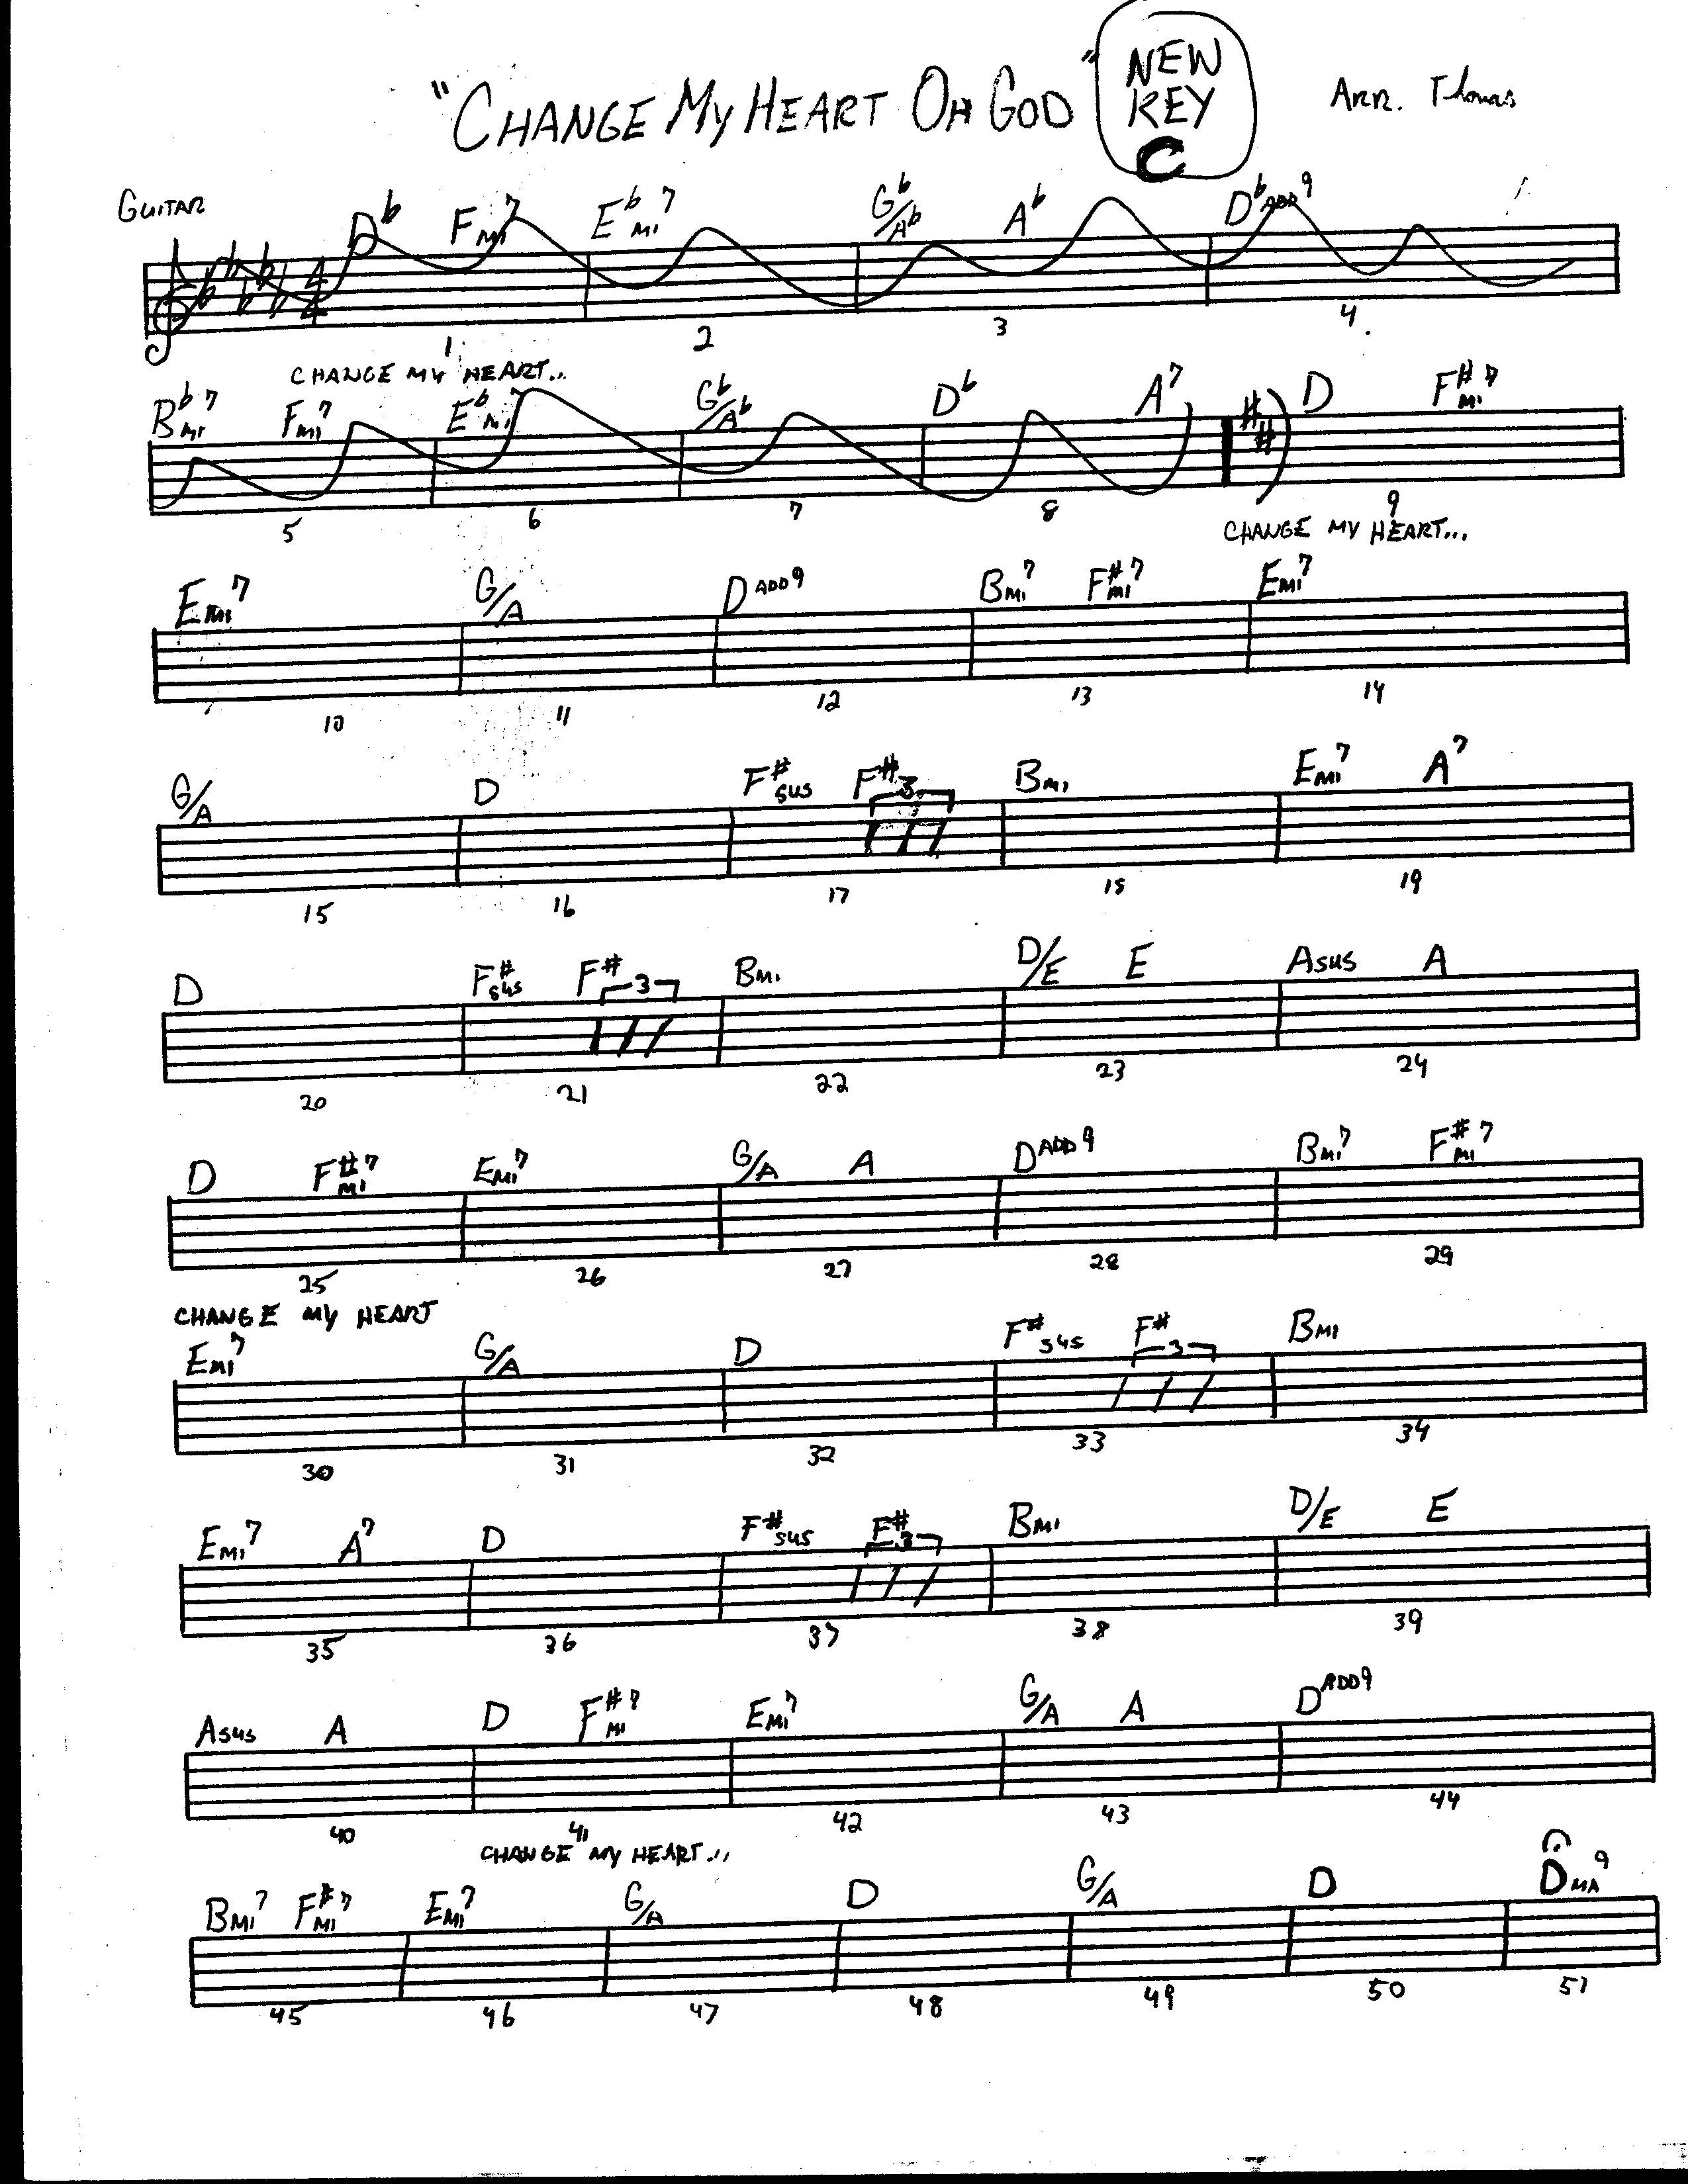 "CHANGE MY HEART OH GOD"
NEW
KEY
C
ARR. Thomas
GUITAR
D♭ FMI7 E♭MI7 G♭/A♭ A♭ D♭ADD9
4/4
1 2 3 4.
CHANGE MY HEART...
B♭MI7 FMI7 E♭MI7 G♭/A♭ D♭ A7 D F#MI7
5 6 7 8 9
CHANGE MY HEART...
EMI7 G/A DADD9 BMI7 F#MI7 EMI7
10 11 12 13 14
G/A D F#SUS F# BMI EMI7 A7
3
15 16 17 18 19
D F#SUS F# BMI D/E E ASUS A
3
20 21 22 23 24
D F#MI7 EMI7 G/A A DADD9 BMI7 F#MI7
25 26 27 28 29
CHANGE MY HEART
EMI7 G/A D F#SUS F# BMI
3
30 31 32 33 34
EMI7 A7 D F#SUS F# BMI D/E E
3
35 36 37 38 39
ASUS A D F#MI7 EMI7 G/A A DADD9
40 41 42 43 44
CHANGE MY HEART...
BMI7 F#MI7 EMI7 G/A D G/A D DMA9
45 46 47 48 49 50 51